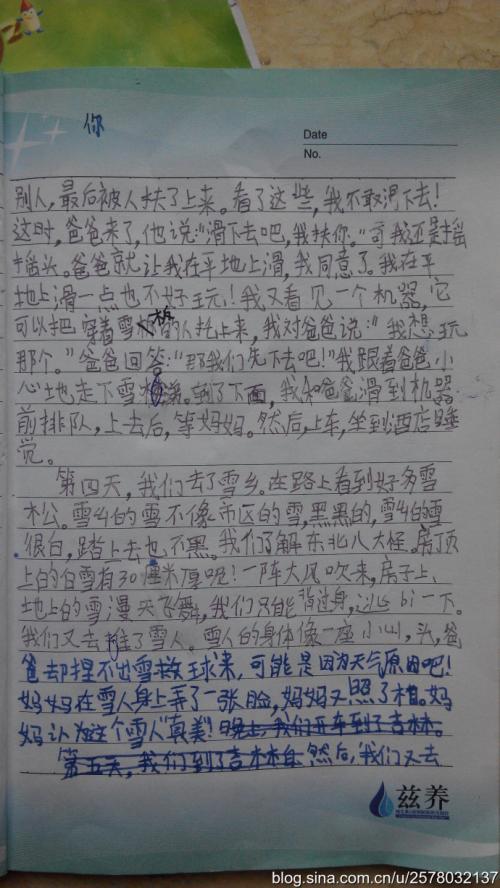 你
Date
No.
别人,最后被人扶了上来。看了这些,我不敢滑下去!
这时,爸爸来了,他说:“滑下去吧,我扶你。”可我还是摇
摇头。爸爸就让我在平地上滑,我同意了。我在平
地上滑一点也不好玩!我又看见一个机器,它
可以把穿着雪的人托上来,我对爸爸说:“我想玩
那个。”爸爸回答:“那我们先下去吧!”我跟着爸爸小
心地走下雪。到了下面,我和爸爸滑到机器
前排队,上去后,等妈妈。然后,上车,坐到酒店睡
觉。
第四天,我们去了雪乡。在路上看到好多雪
松。雪乡的雪不像市区的雪,黑黑的,雪乡的雪
很白,踏上去也不黑。我们了解东北八大怪。房顶
上的白雪有30厘米厚呢!一阵大风吹来,房子上、
地上的雪漫天飞舞,我们只能背过身,bi一下。
我们又去堆了雪人。雪人的身体像一座小山,头,爸
爸却捏不出雪球来,可能是因为天气原因吧!
妈妈在雪人身上弄了一张脸,妈妈又照了相。妈
妈认为这个雪人“真美!晚上,我们开车到了吉林。
第五天,我们到了吉林 然后,我们又去
兹养
blog.sina.com.cn/u/2578032137